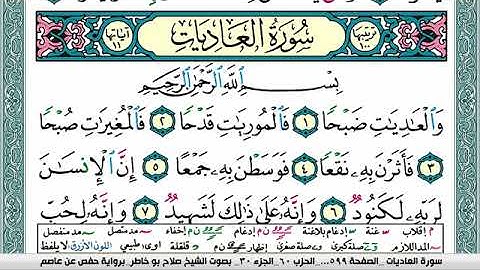 ترتيبها ١٠٠ سُورَةُ الْعَادِيَاتِ آياتها ١١
بِسْمِ اللَّهِ الرَّحْمَٰنِ الرَّحِيمِ
وَالْعَادِيَاتِ ضَبْحًا ١ فَالْمُورِيَاتِ قَدْحًا ٢ فَالْمُغِيرَاتِ صُبْحًا
٣ فَأَثَرْنَ بِهِ نَقْعًا ٤ فَوَسَطْنَ بِهِ جَمْعًا ٥ إِنَّ الْإِنْسَانَ
لِرَبِّهِ لَكَنُودٌ ٦ وَإِنَّهُ عَلَى ذَٰلِكَ لَشَهِيدٌ ٧ وَإِنَّهُ لِحُبِّ
م إقلاب غنة إدغام بلاغنة إدغام إخفاء مد متصل مد منفصل
المد اللازم صلة كبرى صلة صغرى إظهار قلقلة أوى، طبيعي اللون الأزرق لا يلفظ
سورة العاديات .الصفحة ٥٩٩... الحزب ٦٠ .الجزء ٣٠ . بصوت الشيخ صلاح بو خاطر .برواية حفص عن عاصم